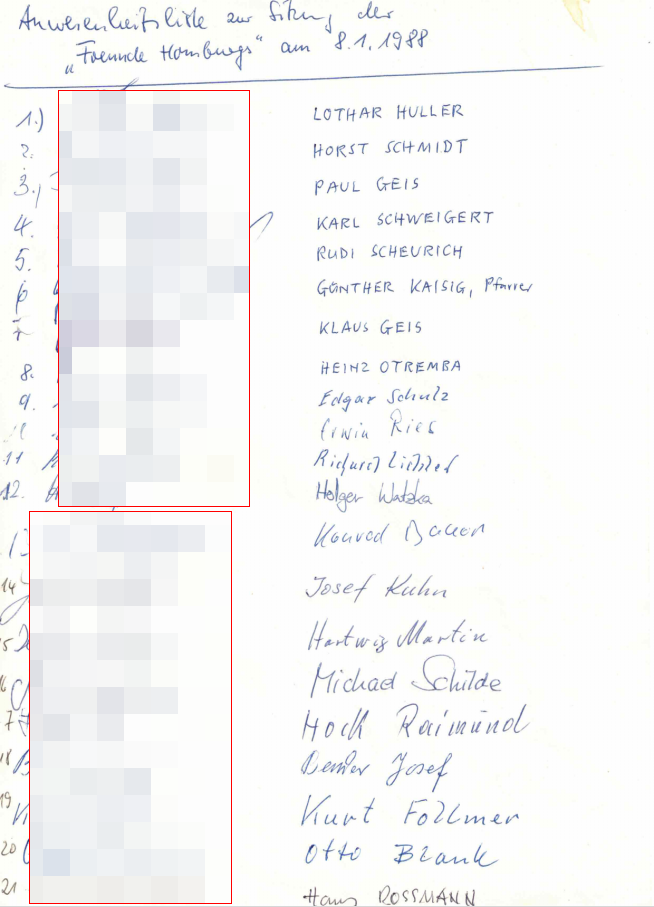 Anwesenheitsliste zur Sitzung der
"Freunde Homburgs" am 8.1.1988
1.) LOTHAR HULLER
2. HORST SCHMIDT
3., PAUL GEIS
4. KARL SCHWEIGERT
5. RUDI SCHEURICH
6 GÜNTHER KAISIG, Pfarrer
7 KLAUS GEIS
8. HEINZ OTREMBA
9. Edgar Schulz
Erwin Ries
11 Richard
12. Holger Watzka
13 Konrad Bauer
14 Josef Kuhn
15 Hartwig Martin
16 Michael Schilde
17 Hock Raimund
18 Josef
19 Kurt Follmer
20 Otto Blank
21 Hans ROSSMANN